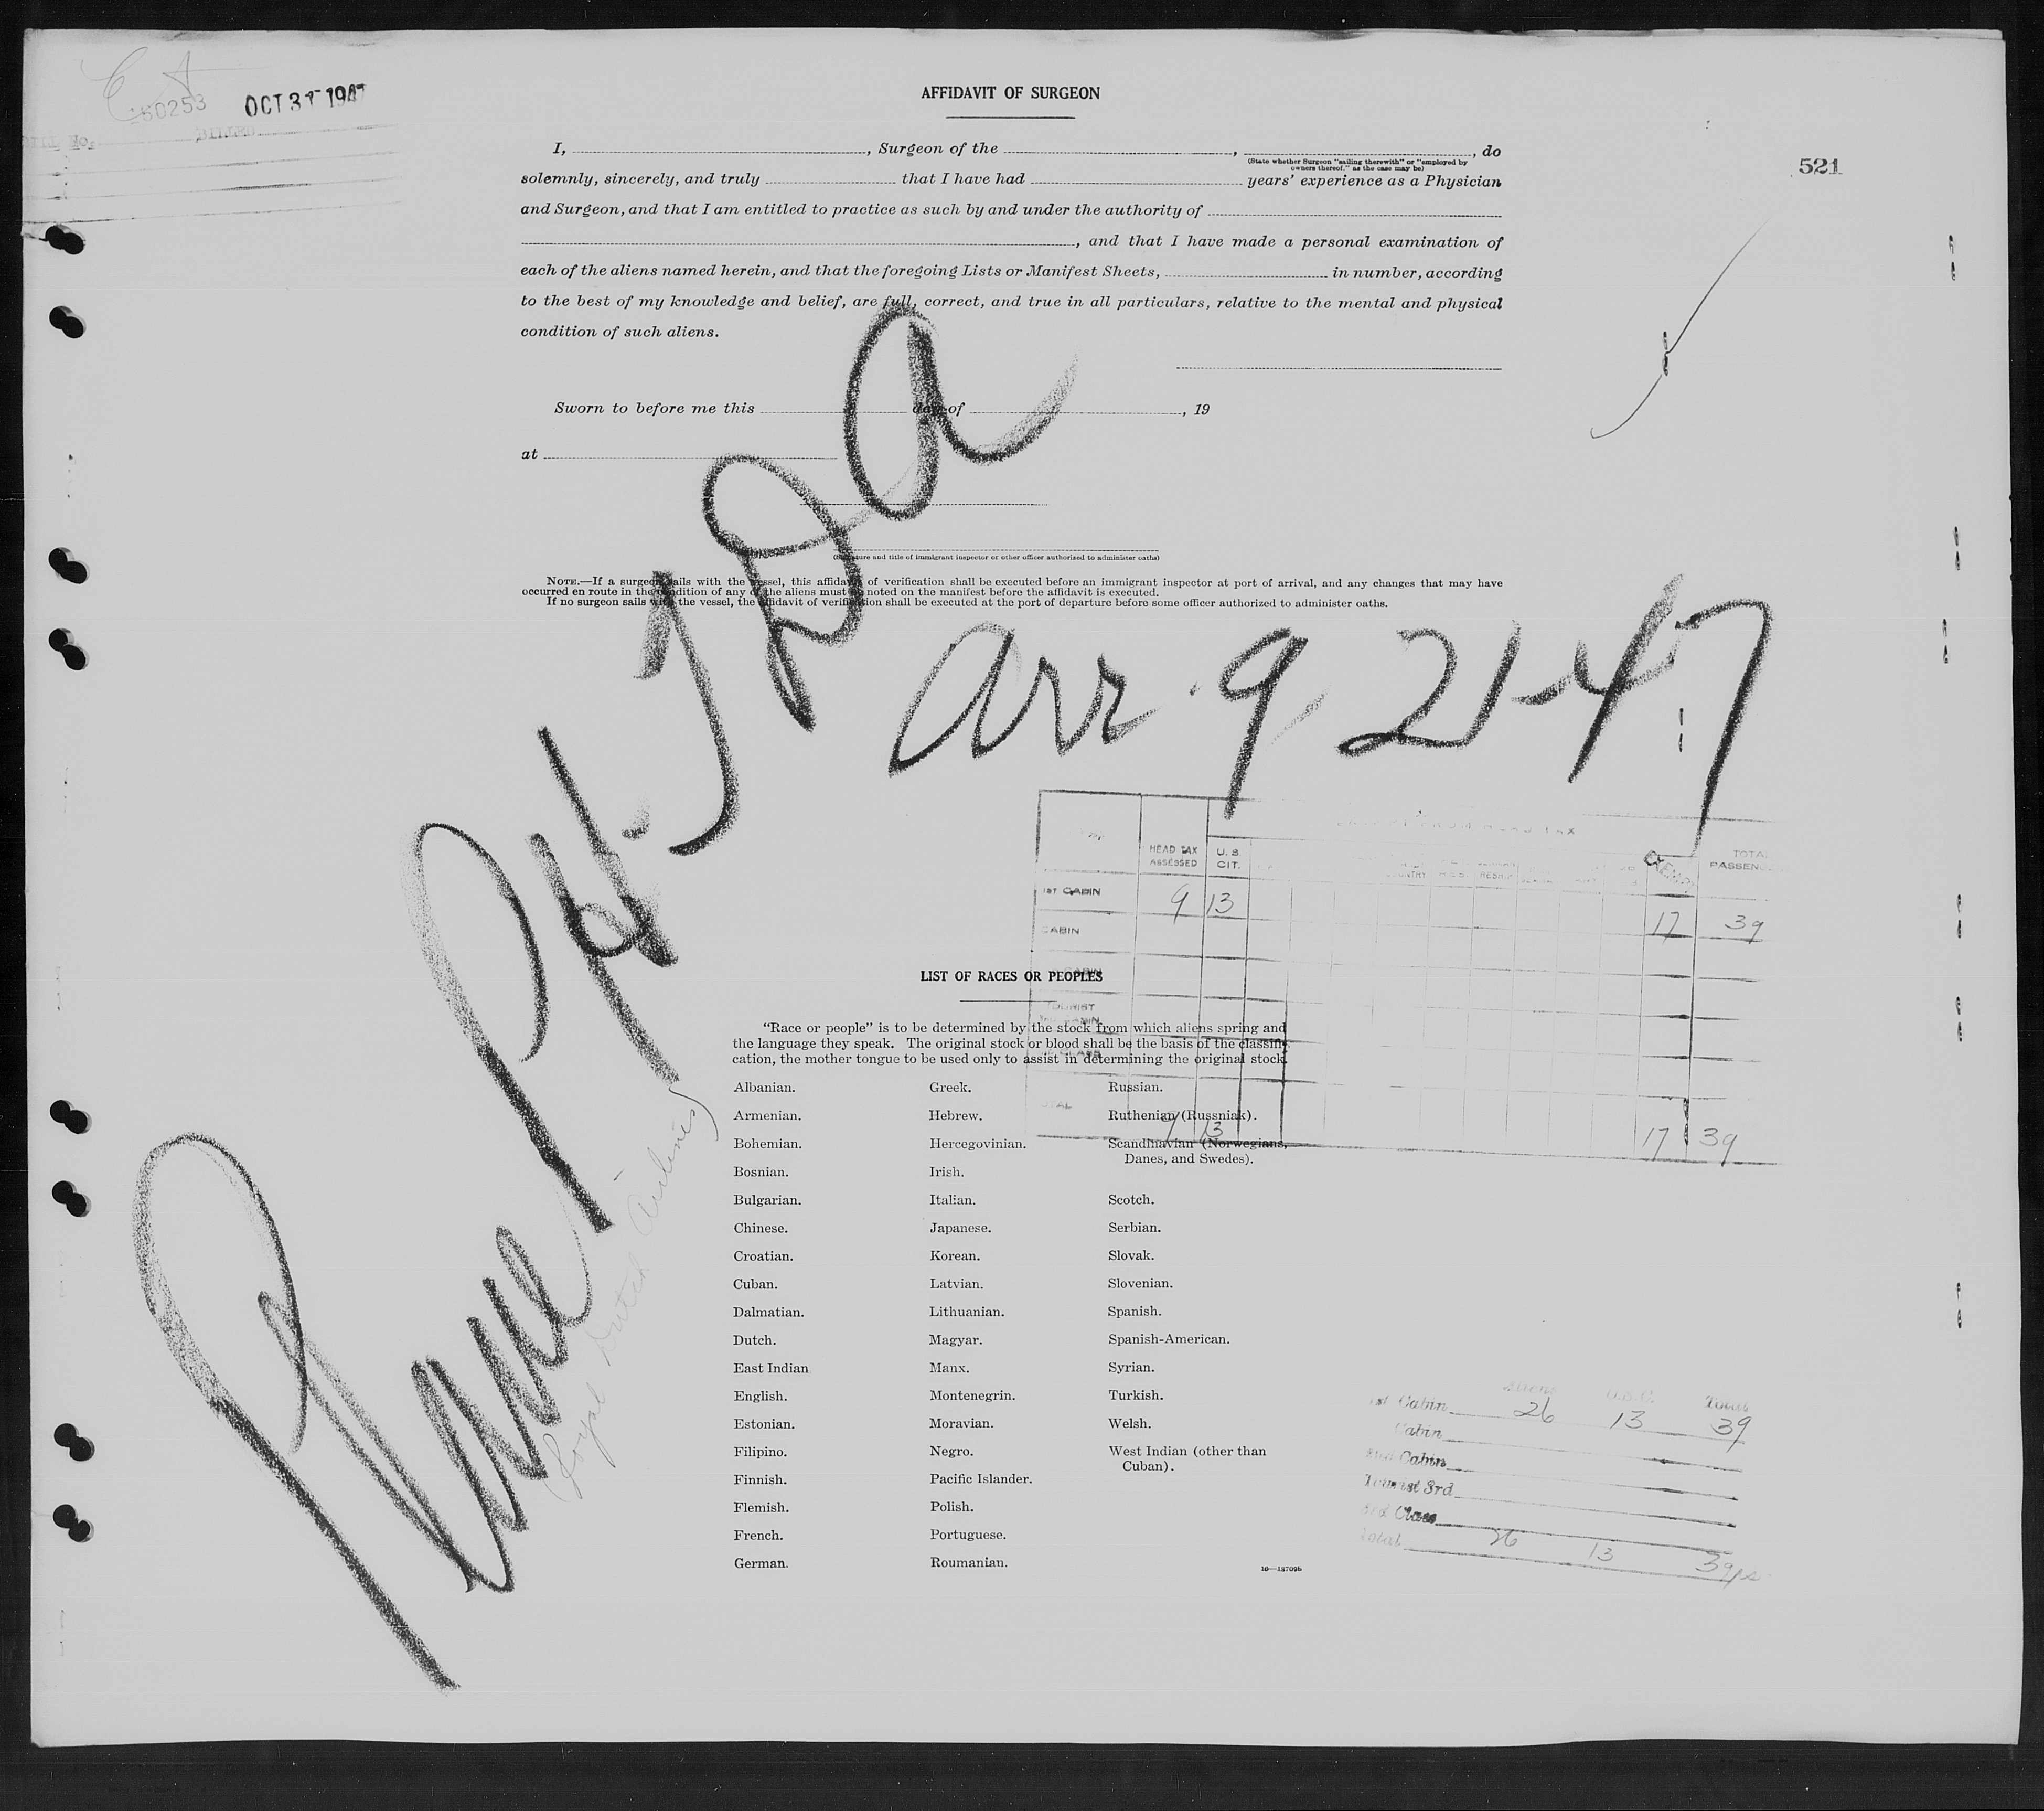 50253 OCT 31 1947
BILLED
521
AFFIDAVIT OF SURGEON
I, , Surgeon of the , , do
(State whether Surgeon "sailing therewith" or "employed by
owners thereof," as the case may be)
solemnly, sincerely, and truly that I have had years' experience as a Physician
and Surgeon, and that I am entitled to practice as such by and under the authority of
, and that I have made a personal examination of
each of the aliens named herein, and that the foregoing Lists or Manifest Sheets, in number, according
to the best of my knowledge and belief, are full, correct, and true in all particulars, relative to the mental and physical
condition of such aliens.
Sworn to before me this day of , 19
at
(Signature and title of immigrant inspector or other officer authorized to administer oaths)
NOTE.—If a surgeon sails with the vessel, this affidavit of verification shall be executed before an immigrant inspector at port of arrival, and any changes that may have
occurred en route in the condition of any of the aliens must be noted on the manifest before the affidavit is executed.
If no surgeon sails with the vessel, the affidavit of verification shall be executed at the port of departure before some officer authorized to administer oaths.
Plane PH-TDA
(Royal Dutch Airlines)
arr. 9-21-47
HEAD TAX ASSESSED U. S. CIT. TOTAL PASSEN
1ST CABIN 9 13 17 39
CABIN
TOURIST
TOTAL 9 13 17 39
LIST OF RACES OR PEOPLES
"Race or people" is to be determined by the stock from which aliens spring and
the language they speak. The original stock or blood shall be the basis of the classifi-
cation, the mother tongue to be used only to assist in determining the original stock.
Albanian. Greek. Russian.
Armenian. Hebrew. Ruthenian (Russniak).
Bohemian. Hercegovinian. Scandinavian (Norwegians,
Danes, and Swedes).
Bosnian. Irish.
Bulgarian. Italian. Scotch.
Chinese. Japanese. Serbian.
Croatian. Korean. Slovak.
Cuban. Latvian. Slovenian.
Dalmatian. Lithuanian. Spanish.
Dutch. Magyar. Spanish-American.
East Indian Manx. Syrian.
English. Montenegrin. Turkish.
Estonian. Moravian. Welsh.
Filipino. Negro. West Indian (other than
Cuban).
Finnish. Pacific Islander.
Flemish. Polish.
French. Portuguese.
German. Roumanian.
16—18709b
Aliens U.S.C. Total
1st Cabin 26 13 39
Cabin
Cabin
Tourist 3rd
3rd Class
Total 26 13 39